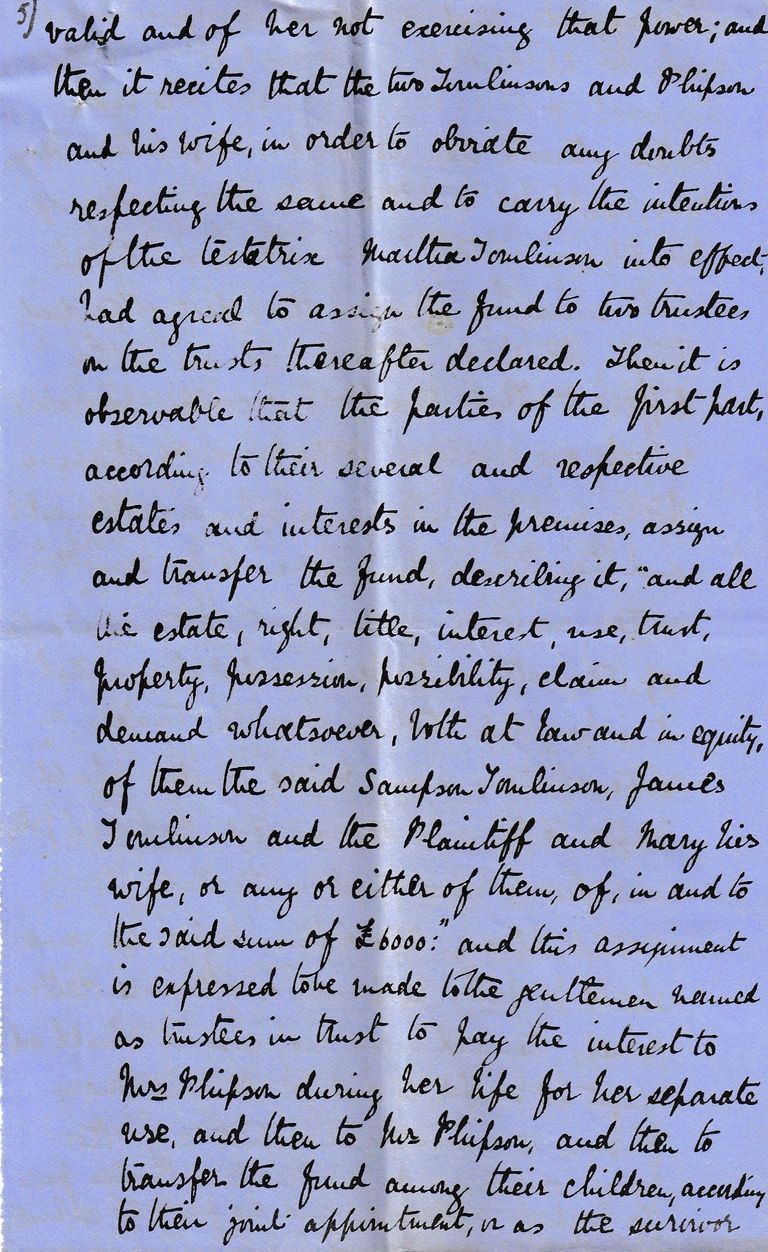 5)
valid and of her not exercising that power; and
then it recites that the two Tomlinsons and Phipson
and his wife, in order to obviate any doubts
respecting the same and to carry the intentions
of the testatrix Martha Tomlinson into effect,
had agreed to assign the fund to two trustees
on the trusts thereafter declared. Then it is
observable that the parties of the first part,
according to their several and respective
estates and interests in the premises, assign
and transfer the fund, describing it, "and all
the estate, right, title, interest, use, trust,
property, possession, possibility, claim and
demand whatsoever, both at law and in equity,
of them the said Sampson Tomlinson, James
Tomlinson and the Plaintiff and Mary his
wife, or any or either of them, of, in and to
the said sum of £6000:" and this assignment
is expressed to be made to the gentlemen named
as trustees in trust to pay the interest to
Mrs Phipson during her life for her separate
use, and then to Mr Phipson, and then to
transfer the fund among their children, according
to their joint appointment, or as the survivor